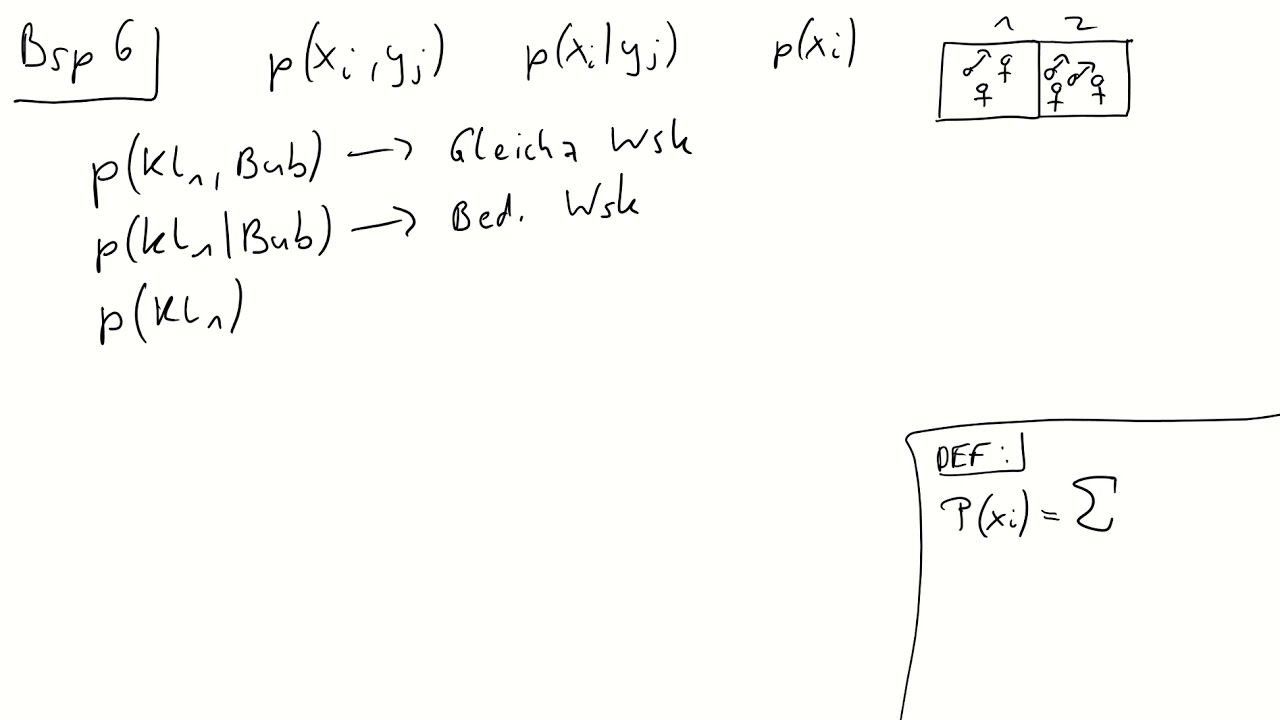 Bsp 6 p(xi, yj) p(xi|yj) p(xi)
1 2
p(Kl1, Bub) → Gleichz Wsk
p(Kl1|Bub) → Bed. Wsk
p(Kl1)
DEF:
P(xi) = Σ